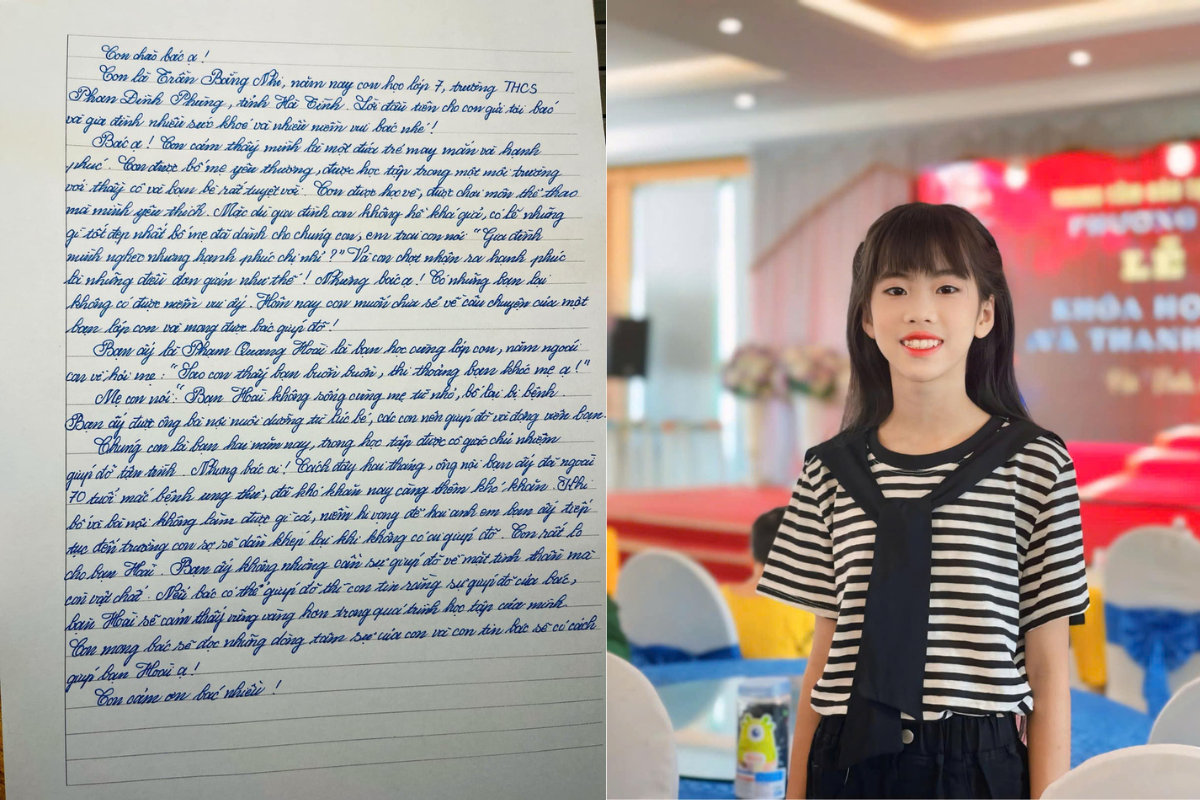 Con chào bác ạ!
Con là Trần Băng Nhi, năm nay con học lớp 7, trường THCS
Phan Đình Phùng, tỉnh Hà Tĩnh. Lời đầu tiên cho con gửi tới bác
và gia đình nhiều sức khoẻ và nhiều niềm vui bác nhé!
Bác ạ! Con cảm thấy mình là một đứa trẻ may mắn và hạnh
phúc. Con được bố mẹ yêu thương, được học tập trong một môi trường
với thầy cô và bạn bè rất tuyệt vời. Con được học vẽ, được chơi môn thể thao
mà mình yêu thích. Mặc dù gia đình con không hề khá giả, có lẽ những
gì tốt đẹp nhất bố mẹ đã dành cho chúng con, em trai con nói "Gia đình
mình nghèo nhưng hạnh phúc chị nhỉ?" Và con chợt nhận ra hạnh phúc
là những điều đơn giản như thế! Nhưng bác ạ! Có những bạn lại
không có được niềm vui ấy. Hôm nay con muốn chia sẻ về câu chuyện của một
bạn lớp con và mong được bác giúp đỡ!
Bạn ấy là Phạm Quang Hoài là bạn học cùng lớp con, năm ngoái
con về hỏi mẹ: "Sao con thấy bạn buồn buồn, thi thoảng bạn khóc mẹ ạ!"
Mẹ con nói: "Bạn Hoài không sống cùng mẹ từ nhỏ, bố lại bị bệnh.
Bạn ấy được ông bà nội nuôi dưỡng từ lúc bé, các con nên giúp đỡ và động viên bạn.
Chúng con là bạn hai năm nay, trong học tập được cô giáo chủ nhiệm
giúp đỡ tận tình. Nhưng bác ơi! Cách đây hai tháng, ông nội bạn ấy đã ngoài
70 tuổi mắc bệnh ung thư, đã khó khăn nay càng thêm khó khăn. Khi
bố và bà nội không làm được gì cả, niềm hi vọng để hai anh em bạn ấy tiếp
tục đến trường con sợ sẽ dần khép lại khi không có ai giúp đỡ. Con rất lo
cho bạn Hoài. Bạn ấy không những cần sự giúp đỡ về mặt tinh thần mà
còn vật chất. Nếu bác có thể giúp đỡ thì con tin rằng sự giúp đỡ của bác,
bạn Hoài sẽ cảm thấy vững vàng hơn trong quá trình học tập của mình.
Con mong bác sẽ đọc những dòng tâm sự của con và con tin bác sẽ có cách
giúp bạn Hoài ạ!
Con cảm ơn bác nhiều!
PHƯƠNG
LỄ
KHÓA HO
VÀ THANH